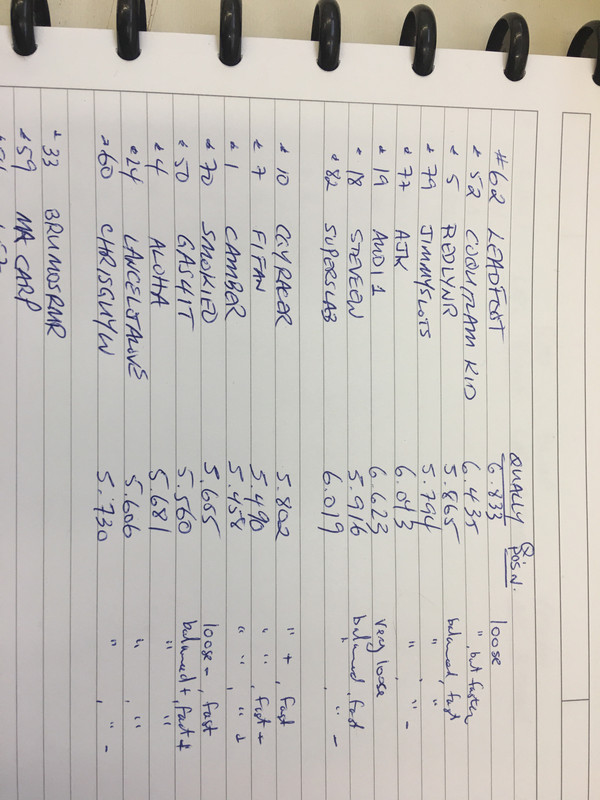 QUALLY POS'N.
#62 LEADFOOT 6.833 loose
" 52 COQUITLAM KID 6.435 " but faster
" 5 REDLYNR 5.865 balanced, fast
" 79 JIMMYSLOTS 5.794 " "
" 77 AJK 6.043 " , " -
" 19 AUDI 1 6.623 very loose
" 18 STEVEEN 5.916 balanced, fast
" 82 SUPERSLAB 6.019 " , " -
" 10 5.802 " +, fast
" 7 FIFAN 5.490 " ", fast +
" 1 CAMBER 5.458 " ", " +
" 70 SMOKIED 5.655 loose -, fast
" 50 GAS4IT 5.560 balanced +, fast +
" 4 ALOHA 5.681 " "
" 24 LANCELOTALOVE 5.606 " , "
" 60 CHRISGUYW 5.730 " , " -
" 33 BRUMOSRMR
" 59 MA CARP